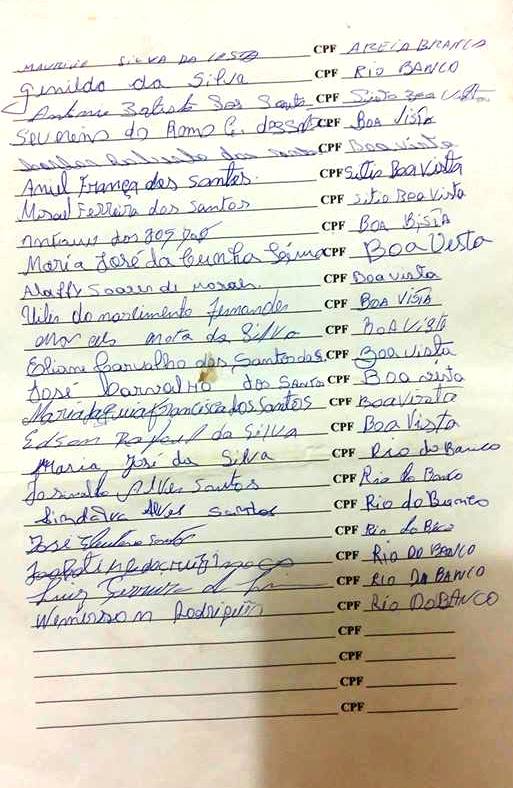 MAURINO SILVA DA COSTA CPF AREIA BRANCA
Genildo da Silva CPF RIO BANCO
Antonio Batista dos Santos CPF Sitio Boa Vista
Severino do Ramo G. dos CPF BOA VISTA
dos CPF Boa vista
Aniel França dos Santos. CPF Sitio Boa Vista
Misael Ferreira dos Santos CPF sitio Boa Vista
Antonio dos CPF BOA BISTA
Maria José da Cunha CPF Boa Vista
Alaffy Soares de morais. CPF Boa vista
do nascimento Fernandes CPF BOA VISTA
mota da Silva CPF BOA VISTA
Eliane Carvalho dos Santos CPF Boa vista
José Carvalho dos Santos CPF Boa vista
Maria da Guia Francisca dos Santos CPF Boa Vista
Edson Rafael da Silva CPF Boa Vista
Maria José da Silva CPF Rio do Banco
Alves Santos CPF Rio do Banco
Sindalva Alves Santos CPF Rio do Banco
José Santos CPF Rio do
CPF RIO DO BANCO
Luiz Ferreira de CPF RIO DA BANCO
Wemerson Rodrigues CPF RIO DO BANCO
CPF
CPF
CPF
CPF